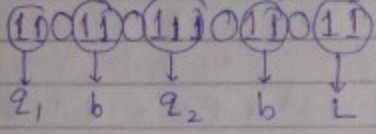 11 0 11 0 111 0 11 0 11
q₁ b q₂ b L